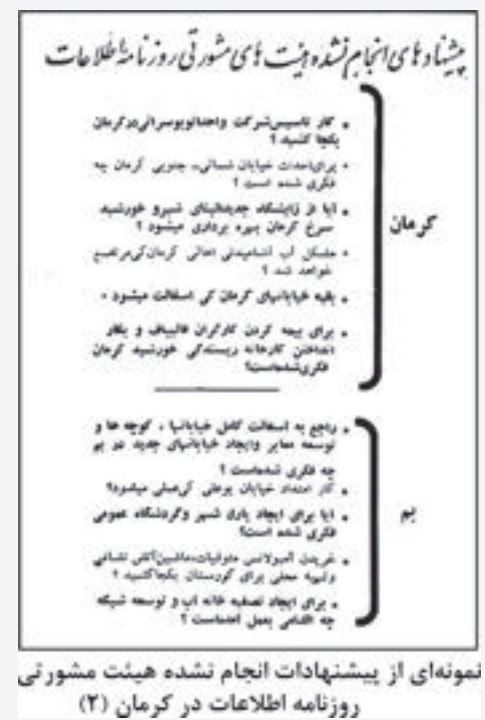 پیشنهادهای انجام نشده هیئت های مشورتی روزنامه اطلاعات
کرمان
• کار تاسیس شرکت واحد اتوبوسرانی در کرمان
بکجا کشید ؟
• برای احداث خیابان شمالی ـ جنوبی کرمان چه
فکری شده است ؟
• آیا از زایشگاه جدیدالبنای شیر و خورشید
سرخ کرمان بهره برداری میشود ؟
• مشکل آب آشامیدنی اهالی کرمان کی مرتفع
خواهد شد ؟
• بقیه خیابانهای کرمان کی اسفالت میشود .
• برای بیمه کردن کارگران قالیباف و بکار
انداختن کارخانه ریسندگی خورشید کرمان
فکری شده‌است؟
بم
• راجع به اسفالت کامل خیابانها ، کوچه ها و
توسعه معابر وایجاد خیابانهای جدید در بم
چه فکری شده‌است ؟
• کار امتداد خیابان بوعلی کی عملی میشود؟
• آیا برای ایجاد پارک شهر وگردشگاه عمومی
فکری شده است؟
• خریدن آمبولانس متوفیات،ماشین آتش نشانی
وتهیه محلی برای گورستان بکجا کشید ؟
• برای ایجاد تصفیه خانه آب و توسعه شبکه
چه اقدامی بعمل آمده‌است ؟
نمونه‌ای از پیشنهادات انجام نشده هیئت مشورتی
روزنامه اطلاعات در کرمان (۲)